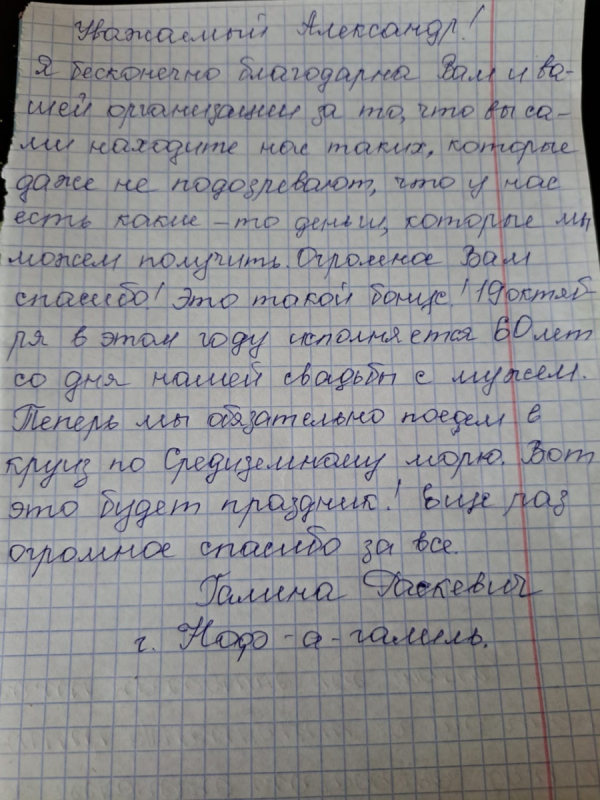 Уважаемый Александр!
Я бесконечно благодарна Вам и ва-
шей организации за то, что вы са-
ми находите нас таких, которые
даже не подозревают, что у нас
есть какие-то деньги, которые мы
можем получить. Огромное Вам
спасибо! Это такой бонус! 19 октяб-
ря в этом году исполняется 60 лет
со дня нашей свадьбы с мужем.
Теперь мы обязательно поедем в
круиз по Средиземному морю. Вот
это будет праздник! Еще раз
огромное спасибо за все.
Галина Паскевич
г. Ноф-а-галиль.